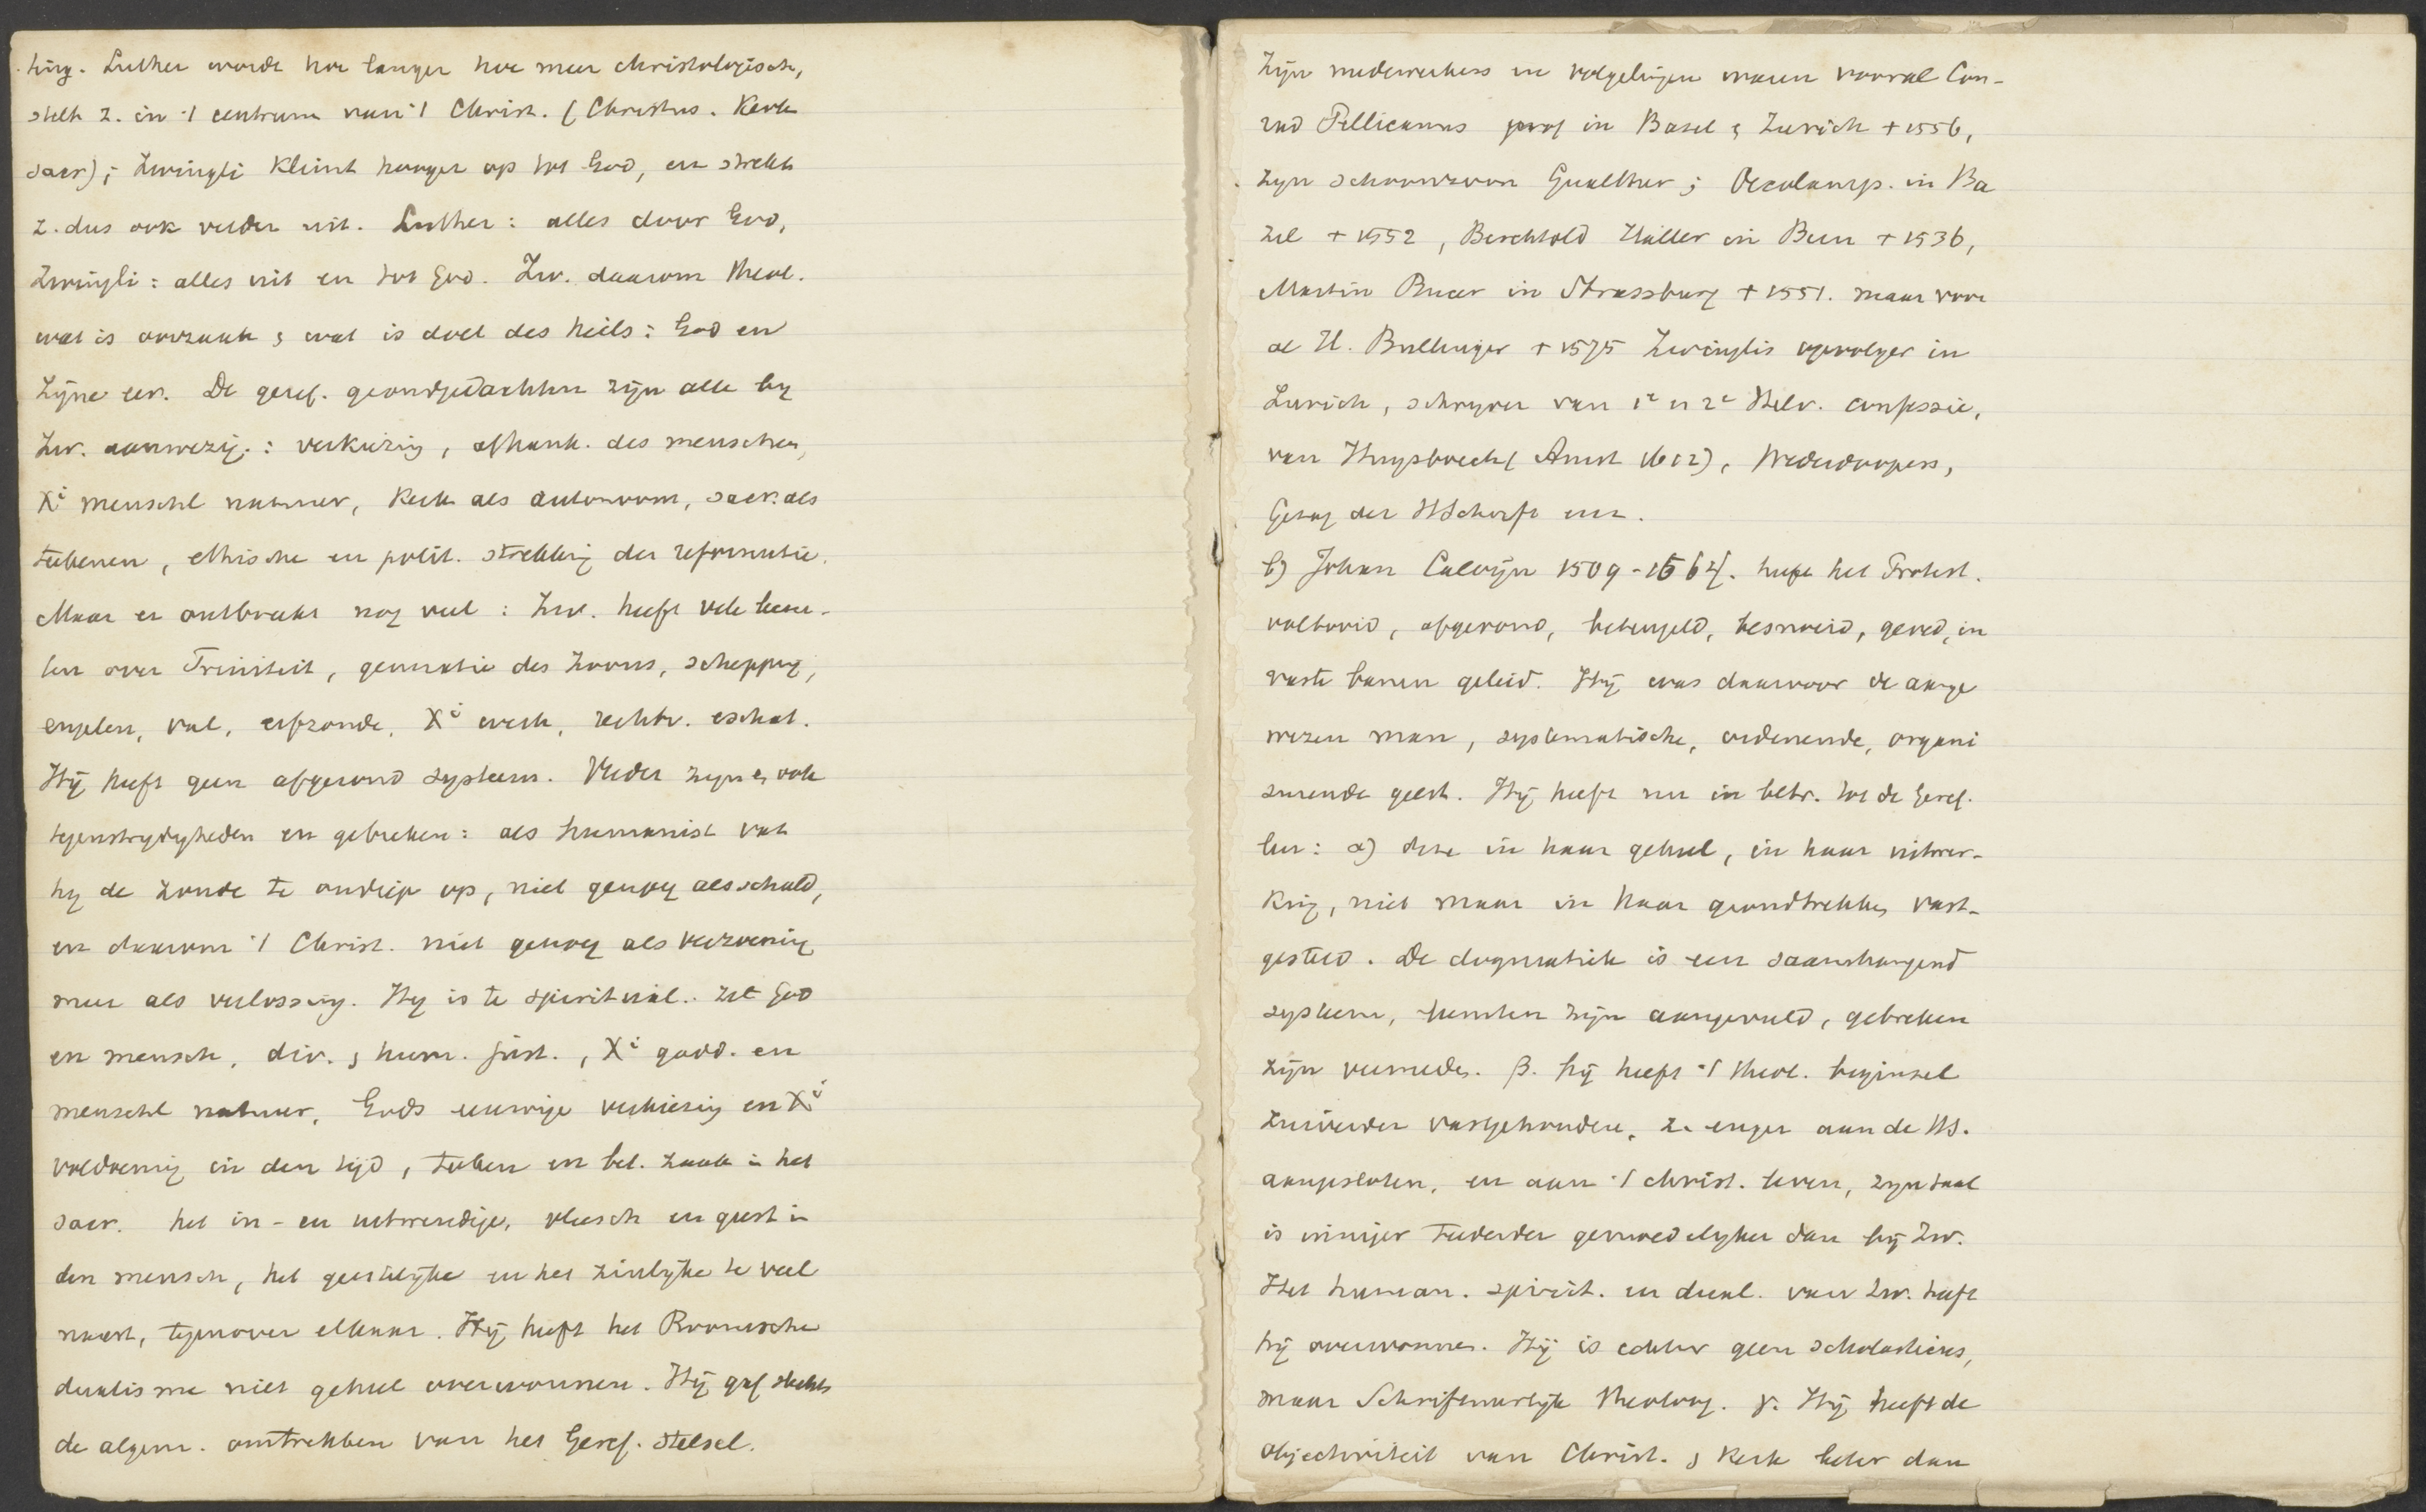 ting. Luther worde hoe langer hoe meer christologisch,
stelt z. in 't centrum van 't Christ. (Christus. Kerk
sacr); Zwingli klimt hooger op tot God, en strekt
z. dus ook verder uit. Luther: alles door God,
Zwingli: alles uit en tot God. Zw. daarom theol.
wat is oorzaak & wat is doel des heils: God en
Zijne eer. De geref. grondgedachten zijn alle by
Zw. aanwezig: verkiezing, afhank. des menschen,
Xi menschl natuur, Kerk als autonoom, sacr. als
teekenen, ethische en polit. strekking der reformatie.
Maar er ontbreekt nog veel: Zw. heeft vele leem-
ten over Triniteit, generatie des Zoons, schepping,
engelen, val, erfzonde, Xi werk, rechtv. eschat.
Hij heeft geen afgerond systeem. Verder zyn er ook
tegenstrydigheden en gebreken: als humanist vat
hy de zonde te ondiep op, niet genoeg als schuld,
en daarom 't Christ. niet genoeg als verzoening
meer als verlossing. Hy is te spiritual. zet God
en mensch, div. & hum. just., Xi godd. en
menschl natuur, Gods eeuwige verkiezing en Xi
voldoening in den tijd, teeken en bet. zaak in het
sacr. het in- en uitwendige, vleesch en geest in
den mensch, het geestelijke en het zinlyke te veel
naast, tegenover elkaar. Hij heeft het Roomsche
dualisme niet geheel overwonnen. Hij gaf slechts
de algem. omtrekken van het Geref. stelsel.
Zijn medewerkers en volgelingen waren vooral Con-
rad Pellicanus prof in Basel & Zurich + 1556,
zyn schoonzoon Gualther; Oecolamp. in Ba
zel + 1552, Berchtold Haller in Bern + 1536,
Martin Bucer in Strassburg + 1551. maar voor
al H. Bullinger + 1575 Zwinglis opvolger in
Zurich, schryver van 1e en 2e Helv. confessie,
van Huysboeck (Amst 1612), Wederdoopers,
Gezag der HSchrift enz.
b) Johan Calvijn 1509-1564. heeft het Protest.
voltooid, afgerond, beteugeld, besnoeid, gered, in
vaste banen geleid. Hij was daarvoor de aange
wezen man, systematische, ordenende, organi
seerende geest. Hij heeft nu in betr. tot de Geref.
leer: α) deze in haar geheel, in haar uitwer-
king, niet maar in haar grondtrekken vast-
gesteld. De dogmatiek is een saamhangend
systeem, leemten zijn aangevuld, gebreken
zijn vermeden. β. hij heeft 't theol. beginsel
zuiverder vastgehouden, z. enger aan de HS.
aangesloten, en aan 't christ. leven, zyn taal
is inniger teederder gemoedelyker dan bij Zw.
Het human. spirit. en dual. van Zw. heeft
hij overwonnen. Hij is echter geen scholasticus,
maar Schriftmatige theoloog. γ. Hij heeft de
objectiviteit van Christ. & Kerk beter dan